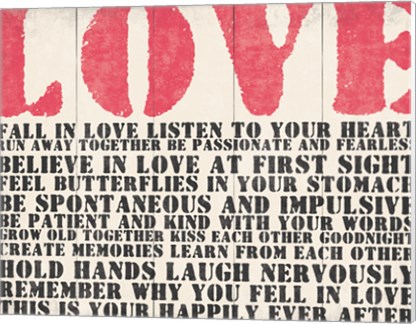 LOVE
FALL IN LOVE LISTEN TO YOUR HEART
RUN AWAY TOGETHER BE PASSIONATE AND FEARLESS
BELIEVE IN LOVE AT FIRST SIGHT
FEEL BUTTERFLIES IN YOUR STOMACH
BE SPONTANEOUS AND IMPULSIVE
BE PATIENT AND KIND WITH YOUR WORDS
GROW OLD TOGETHER KISS EACH OTHER GOODNIGHT
CREATE MEMORIES LEARN FROM EACH OTHER
HOLD HANDS LAUGH NERVOUSLY
REMEMBER WHY YOU FELL IN LOVE
THIS IS YOUR HAPPILY EVER AFTER